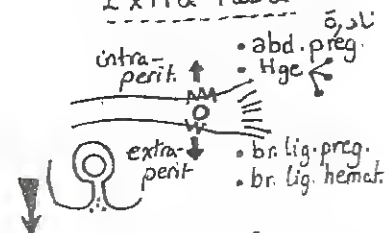 نادرة
intra-
perit.
• abd. preg.
• Hge
extra-
perit
• br. lig. preg.
• br. lig. hemat.